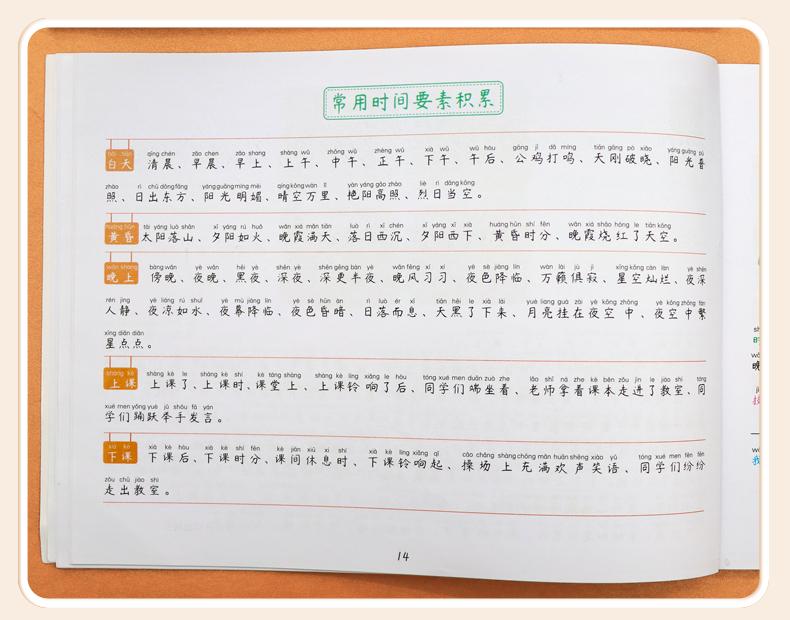 常用时间要素积累
bái tiān qīng chén zǎo chen zǎo shang shàng wǔ zhōng wǔ zhèng wǔ xià wǔ wǔ hòu gōng jī dǎ míng tiān gāng pò xiǎo yáng guāng pǔ
白天 清晨、早晨、早上、上午、中午、正午、下午、午后、公鸡打鸣、天刚破晓、阳光普
zhào rì chū dōng fāng yáng guāng míng mèi qíng kōng wàn lǐ yàn yáng gāo zhào liè rì dāng kōng
照、日出东方、阳光明媚、晴空万里、艳阳高照、烈日当空。
huáng hūn tài yáng luò shān xī yáng rú huǒ wǎn xiá mǎn tiān luò rì xī chén xī yáng xī xià huáng hūn shí fēn wǎn xiá shāo hóng le tiān kōng
黄昏 太阳落山、夕阳如火、晚霞满天、落日西沉、夕阳西下、黄昏时分、晚霞烧红了天空。
wǎn shang bàng wǎn yè wǎn hēi yè shēn yè shēn gēng bàn yè wǎn fēng xí xí yè sè jiàng lín wàn lài jù jì xīng kōng càn làn yè shēn
晚上 傍晚、夜晚、黑夜、深夜、深更半夜、晚风习习、夜色降临、万籁俱寂、星空灿烂、夜深
rén jìng yè liáng rú shuǐ yè mù jiàng lín yè sè hūn àn rì luò ér xī tiān hēi le xià lái yuè liang guà zài yè kōng zhōng yè kōng zhōng fán
人静、夜凉如水、夜幕降临、夜色昏暗、日落而息、天黑了下来、月亮挂在夜空中、夜空中繁
xīng diǎn diǎn
星点点。
shàng kè shàng kè le shàng kè shí kè táng shàng shàng kè líng xiǎng le hòu tóng xué men duān zuò zhe lǎo shī ná zhe kè běn zǒu jìn le jiào shì tóng
上课 上课了、上课时、课堂上、上课铃响了后、同学们端坐着、老师拿着课本走进了教室、同
xué men yǒng yuè jǔ shǒu fā yán
学们踊跃举手发言。
xià kè xià kè hòu xià kè shí fēn kè jiān xiū xi shí xià kè líng xiǎng qǐ cāo chǎng shàng chōng mǎn huān shēng xiào yǔ tóng xué men fēn fēn
下课 下课后、下课时分、课间休息时、下课铃响起、操场上充满欢声笑语、同学们纷纷
zǒu chū jiào shì
走出教室。
14